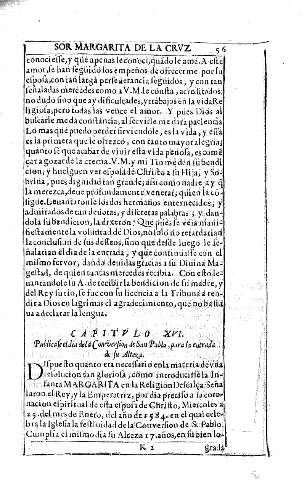 SOR MARGARITA DE LA CRVZ 56
conociesse, y que apenas le conoci, quãdo le amè. A este
amor, se han seguido los empeños de ofrecerme por su
esposa, con tan larga perseverancia seguidos, y con tan
señaladas mercedes como a V.M. le consta, acreditados:
no dudo sino que ay dificultades, y trabajos en la vida Re
ligiosa, pero todas las vence el amor. Y pues Dios al
buscarle me dà constancia, al servirle me darà paciencia
Lo mas que puedo perder sirviendole, es la vida, y essa
es la primera que le ofrezco, con tanto mayor alegria,
quanto se que acabar de vivir esta vida penosa, es come
çar a gozar de la eterna. V.M. y mi Tio me dèn su bendi
cion, y huelguen ver esposa de Christo a su Hija, y So
brina, pues dignidad tan grande, assi como nadie ay q̃
la merezca, deve profundamente venerar, quien la co̅
sigue. Levantaronse los dos hermanos enternecidos; y
admirados de tan devotas, y discretas palabras; y dan
dola su bendicion, la dixeron: Que pues se veìa mani
fiestamente la voluntad de Dios, no solo no retardarian
la conclusion de sus desseos, sino que desde luego le se
ñalarian el dia de la entrada, y que continuasse con el
mismo fervor, dando devidas gracias a su Divina Ma
gestad, de quien tantas mercedes recibia. Con esto le
vantandose su A. de recibir la bendicion de su madre, y
del Rey su tio, se fue con su licencia a la Tribuna à ren
dir a Dios en lagrimas el agradecimiento, que no basta
va a declarar la lengua.
CAPITVLO XVI.
Publicase el dia de la Conversion de San Pablo, para la entrada
de su Alteza.
DIspuesto quanto era necessario en la materia de vna
resolucion tan gloriosa, como introducirse la In
fanta MARGARITA en la Religion Descalça, Seña
laron el Rey, y la Emperatriz, por dia preciso a la co
ronacion espiritual de esta esposa de Christo, Miercoles a
25. del mes de Enero, del año de 1584. en el qual cele
bra la Iglesia la festividad de la Conversion de S. Pablo.
Cumplia el mismo dia su Alteza 17. años, en su bien lo-
K 2 grada